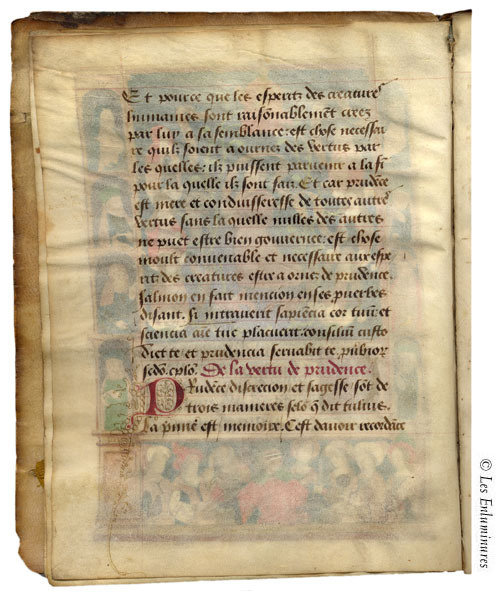 Et pource que les esperitz des creatures
humaines sont raisonablement creez
par luy a sa semblance: est chose necessai
re quilz soient aournez des vertus par
les quelles: ilz puissent parvenir a la fi
pour la quelle ilz sont faiz. Et car prudēce
est mere et conduisseresse de toutes autres
vertus sans la quelle nulles des autres
ne puet estre bien gouvernee. est chose
moult convenable et necessaire aux espe
ritz des creatures estre aornez de prudence.
Salmon en fait mencion en ses puerbes
disant. Si intraverit sapiēcia cor tuum et
sciencia aīe tue placuerit. consilium custo
diet te et prudencia servabit te. pubior
sedo. cplo. De la vertu de prudence.
Prudēce discrecion et sagesse sōt de
trois manieres selō q̄ dit tulius.
La p̄mie est memoire. Cest davoir recordāce
© Les Enluminures